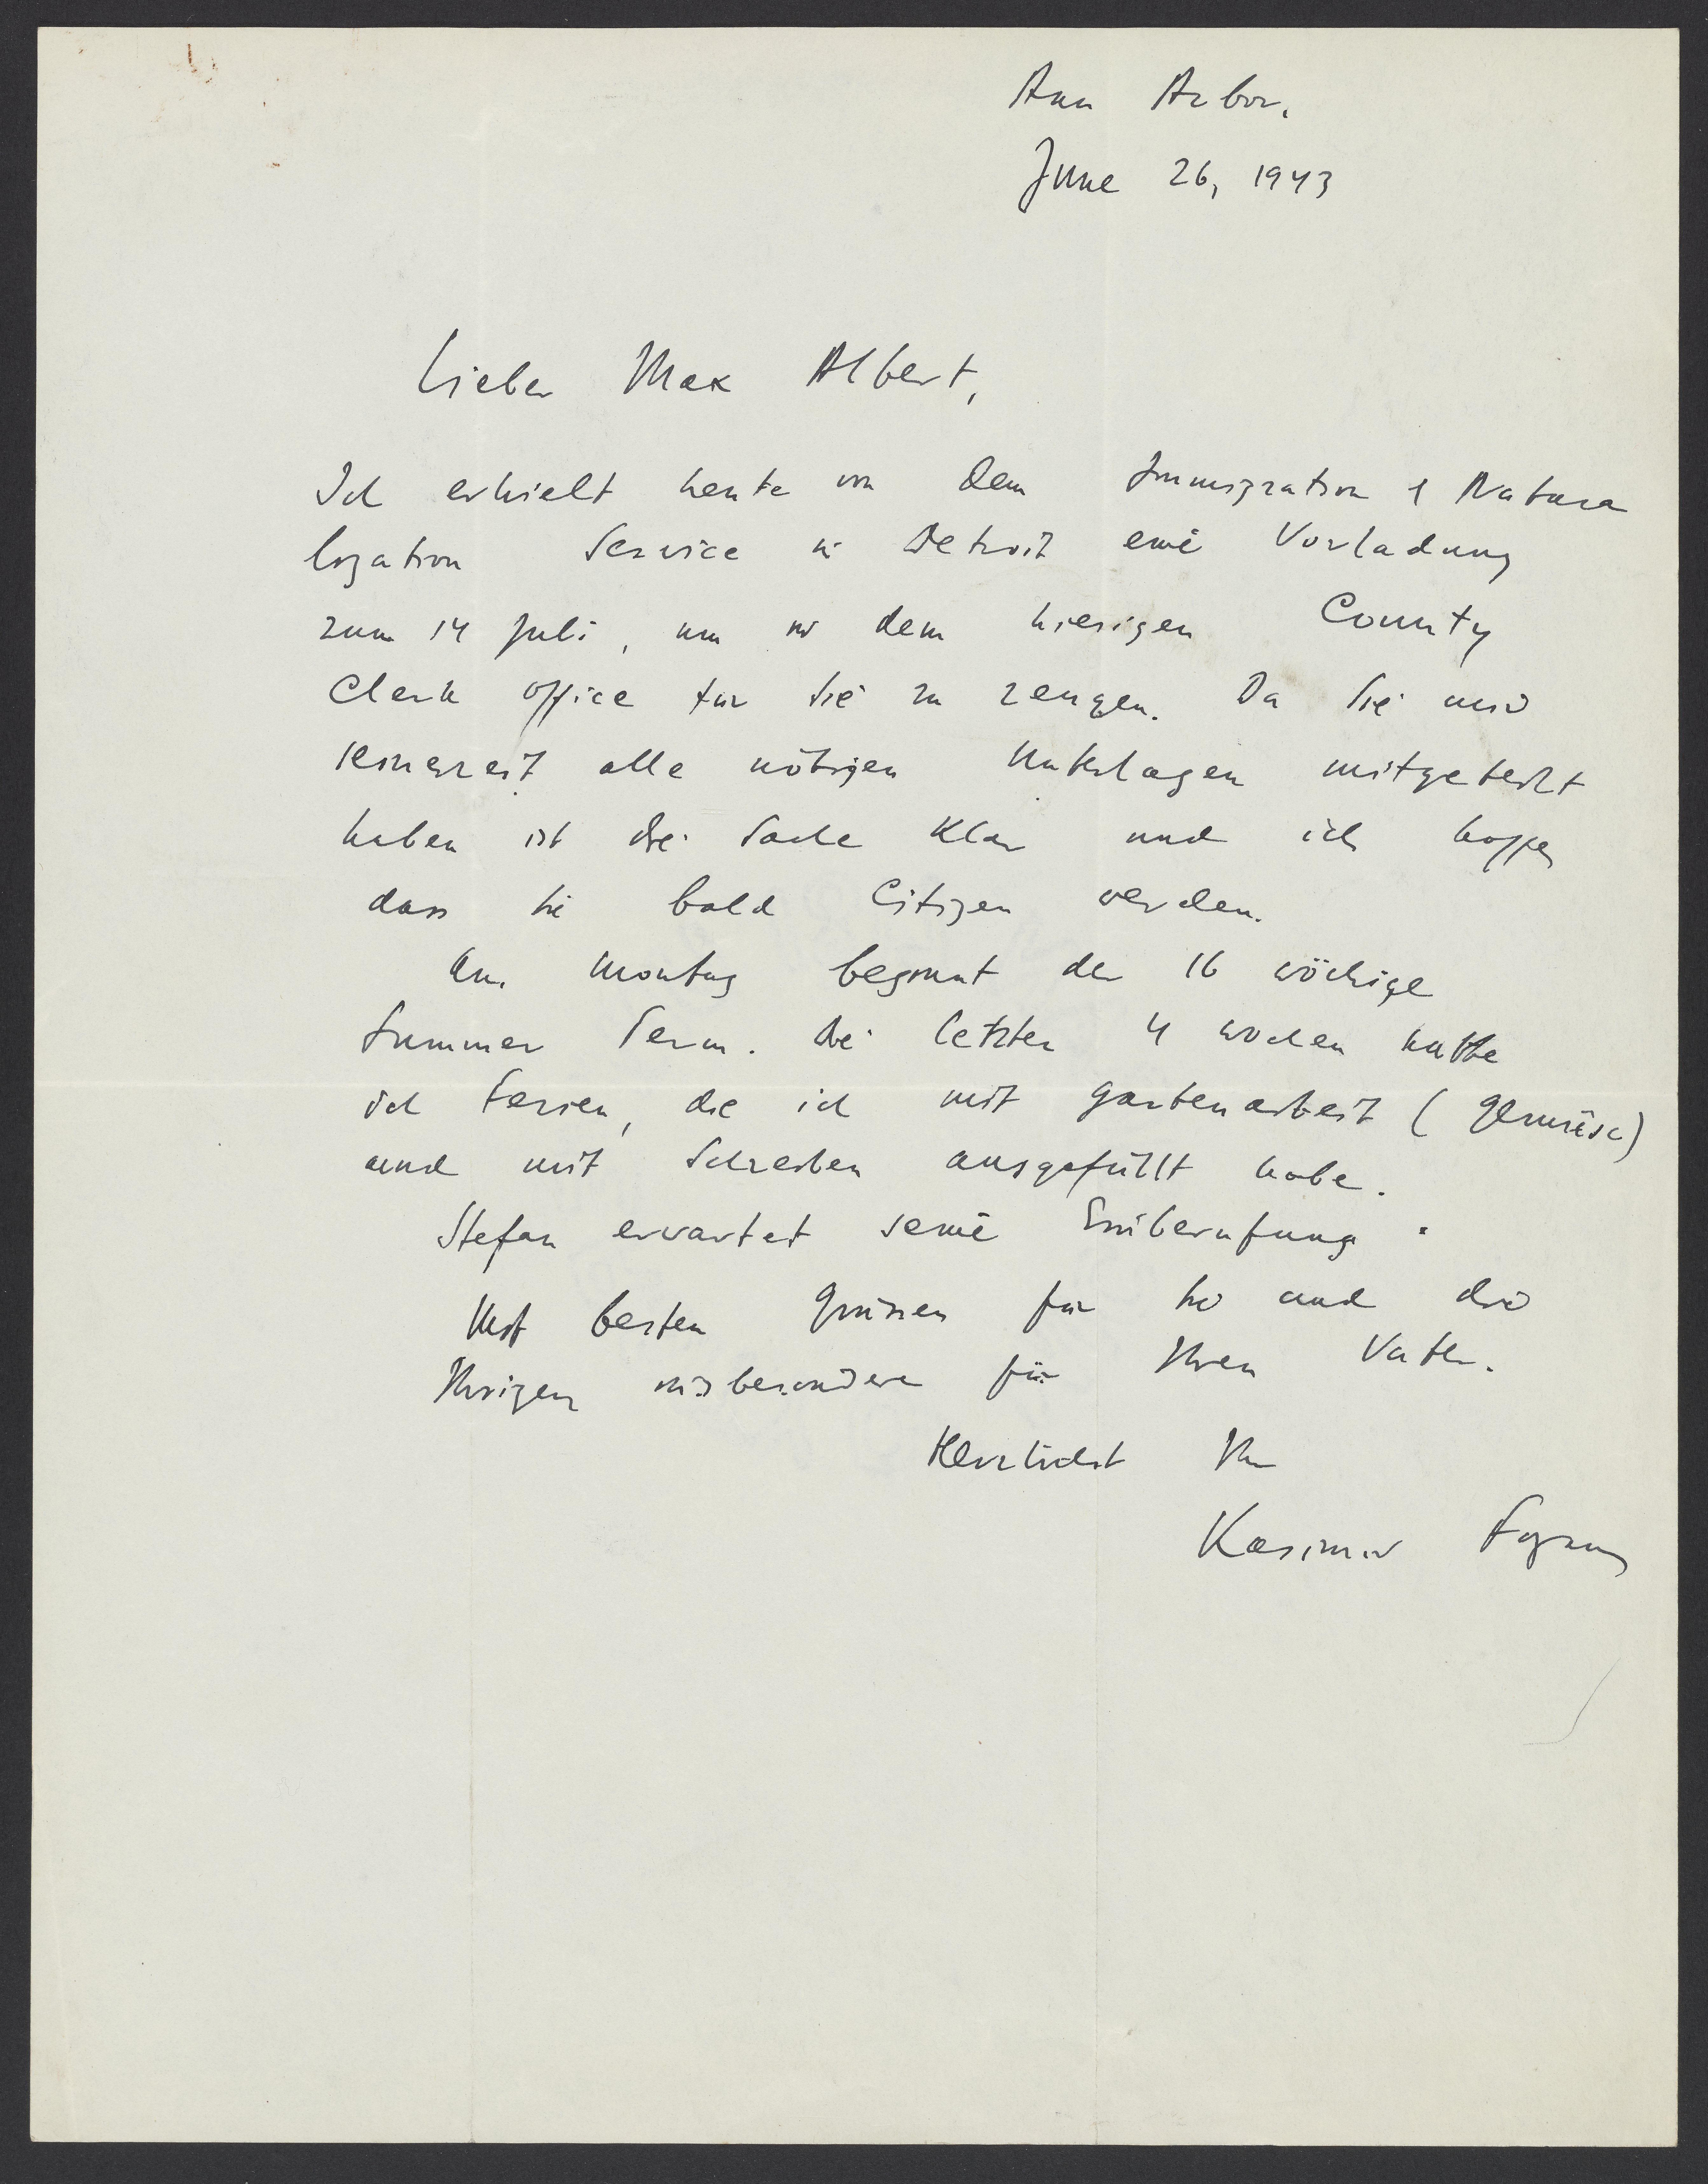 Ann Arbor.
June 26, 1943
Lieber Max Albert,
Ich erhielt heute von dem Immigration & Natura
lization Service in Detroit eine Vorladung
zum 14 Juli, um in dem hiesigen County
Clerk office für Sie zu zeugen. Da Sie mir
seinerzeit alle nötigen Unterlagen mitgeteilt
haben ist die Sache klar und ich hoffe,
dass Sie bald Citizen werden.
Am Montag beginnt der 16 wöchige
Summer Term. Die letzten 4 Wochen hatte
ich Ferien, die ich mit Gartenarbeit (Gemüse)
und mit Schreiben ausgefüllt habe.
Stefan erwartet seine Einberufung.
Mit besten Grüssen für Sie und die
Ihrigen insbesondere für Ihren Vater.
Herzlichst Ihr
Kasimir